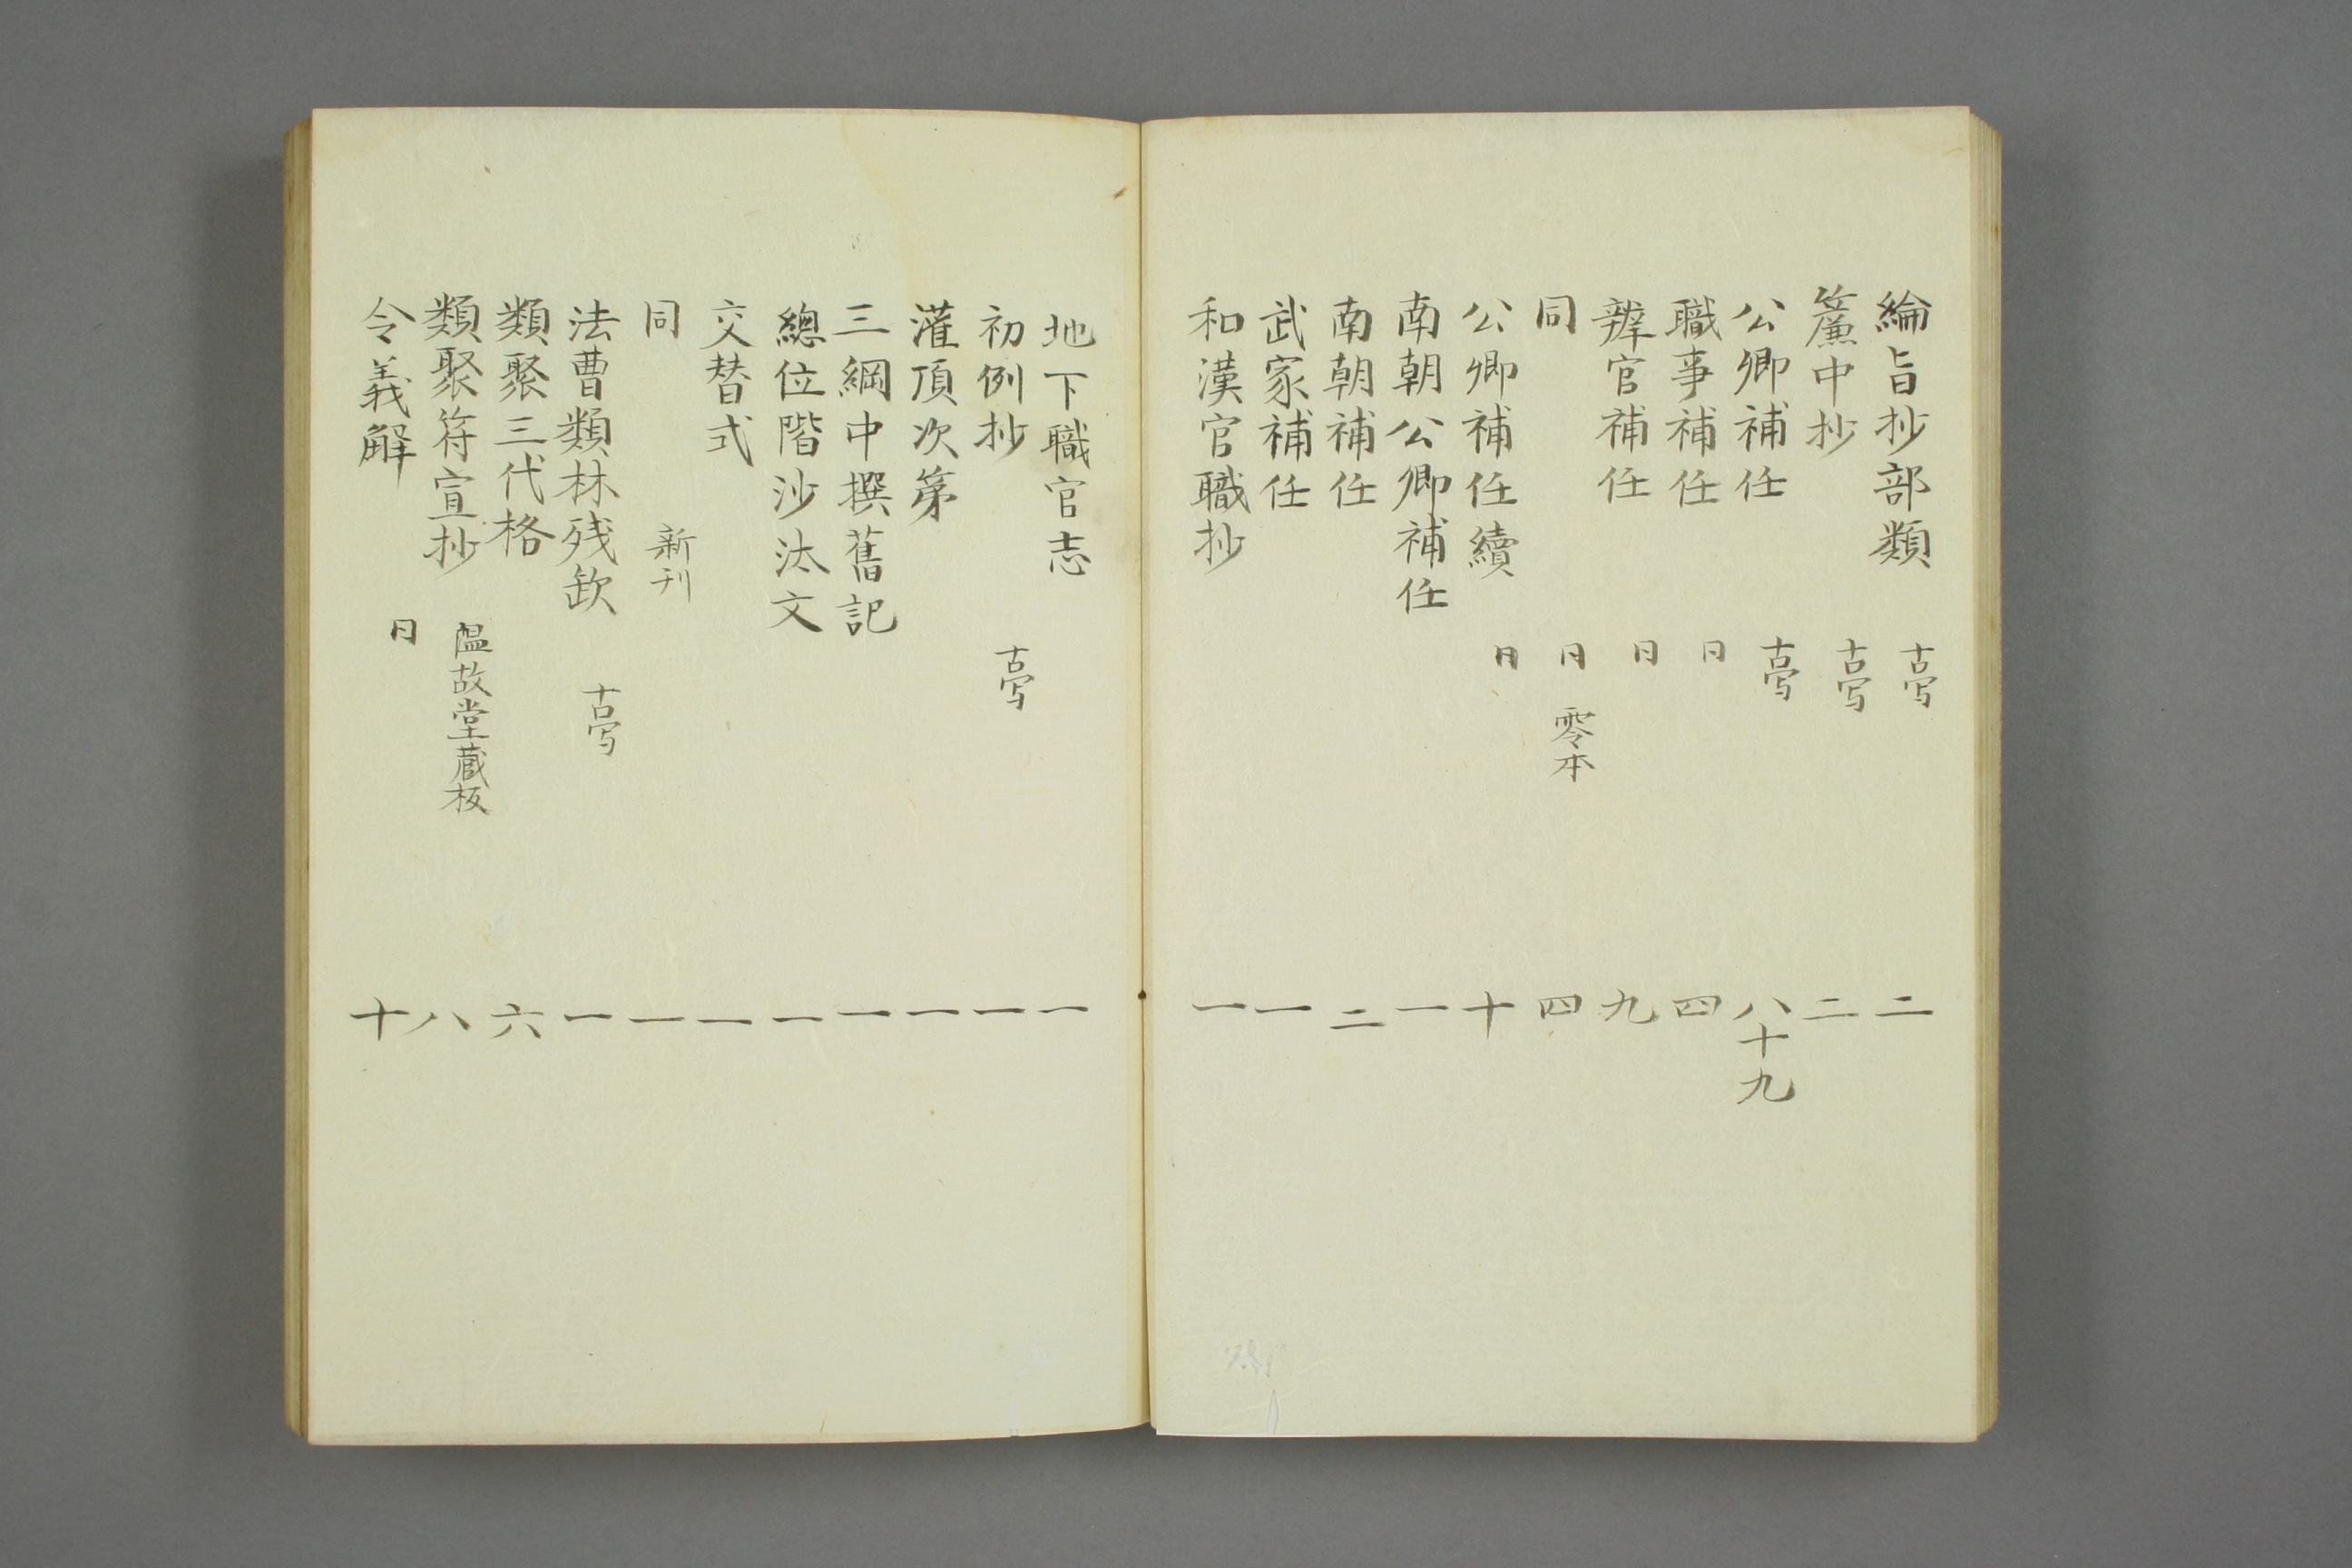 綸旨抄部類 古写 二
簾中抄 古写 二
公卿補任 古写 八十九
職事補任 同 四
辨官補任 同 九
同 同 零本 四
公卿補任續 同 十
南朝公卿補任 一
南朝補任 二
武家補任 一
和漢官職抄 一
地下職官志 一
初例抄 古写 一
灌頂次第 一
三綱中撰舊記 一
總位階沙汰文 一
交替式 一
同 新刊 一
法曹類林残欽 古写 一
類聚三代格 六
類聚符宣抄 温故堂蔵板 八
令義解 同 十